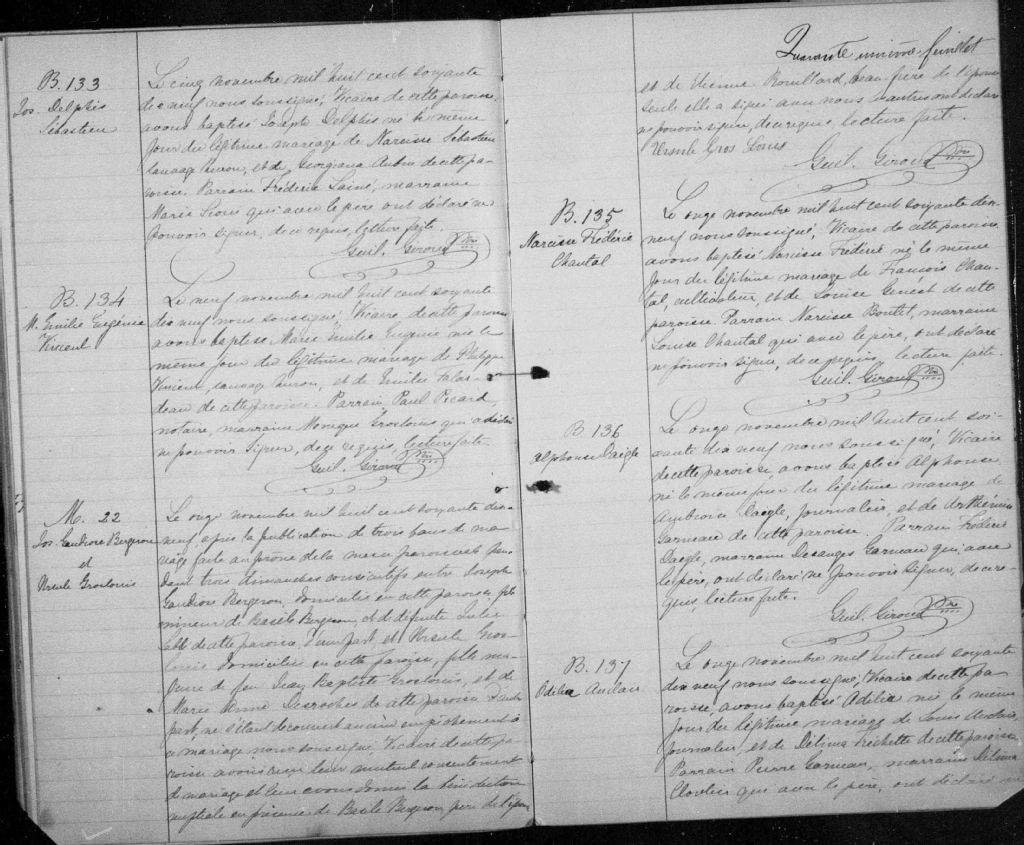 B. 133
Jos. Delphis
Sébastien
Le cinq novembre mil huit cent soixante
dix neuf nous soussigné, Vicaire de cette paroisse,
avons baptisé Joseph Delphis né le même
jour du légitime mariage de Narcisse Sébastien
sauvage huron, et de Georgiana Aubin de cette pa-
roisse. Parrain Frédéric Lainé, marraine
Marie Sioui qui avec le père ont déclaré ne
pouvoir signer, de ce requis, lecture faite.
Guil. Giroux Ptre
B. 134
M. Emilie Eugénie
Vincent
Le neuf novembre mil huit cent soixante
dix neuf nous soussigné, Vicaire de cette paroisse
avons baptisé Marie Emilie Eugénie née le
même jour du légitime mariage de Philippe
Vincent, sauvage huron, et de Emilie Falar-
deau de cette paroisse. Parrain Paul Picard,
notaire, marraine Monique Groslouis qui a déclaré
ne pouvoir signer, de ce requis, lecture faite
Guil. Giroux Ptre
M. 22
Jos. Gaudiose Bergeron
et
Ursule Groslouis
Le onze novembre mil huit cent soixante dix-
neuf après la publication de trois bans de ma-
riage faite au prône de la messe paroissiale pen-
dant trois dimanches consécutifs entre Joseph
Gaudiose Bergeron, domicilié en cette paroisse, fils
mineur de Basile Bergeron, et de défunte Julie
de cette paroisse, d'une part et Ursule Gros
Louis domiciliée en cette paroisse, fille ma-
jeure de feu Jean Baptiste Groslouis, et de
Marie Anne Desroches de cette paroisse d'autre
part, ne s'étant découvert aucun empêchement à
ce mariage nous soussigné Vicaire de cette pa-
roisse avons reçu leur mutuel consentement
de mariage et leur avons donné la bénédiction
nuptiale en présence de Basile Bergeron père de l'époux
Quarante unième feuillet
et de Etienne Rouillard, beau-frère de l'épouse
Seule elle a signé avec nous les autres ont déclaré
ne pouvoir signer, de ce requis, lecture faite.
Ursule Gros Louis
Guil. Giroux Ptre
B. 135
Narcisse Frédéric
Chantal
Le onze novembre mil huit cent soixante dix-
neuf nous soussigné, Vicaire de cette paroisse,
avons baptisé Narcisse Frédéric né le même
jour du légitime mariage de François Chan-
tal, cultivateur, et de Louise Genest de cette
paroisse. Parrain Narcisse Boutet, marraine
Louise Chantal qui avec le père, ont déclaré
ne pouvoir signer, de ce requis, lecture faite.
Guil. Giroux Ptre
B 136
Alphonse Daigle
Le onze novembre mil huit cent soi-
xante dix neuf nous soussigné, Vicaire
de cette paroisse avons baptisé Alphonse
né le même jour du légitime mariage de
Ambroise Daigle, journalier, et de Arthémise
Garneau de cette paroisse. Parrain Frédéric
Daigle, marraine Desanges Garneau qui, avec
le père, ont déclaré ne pouvoir signer, de ce re-
quis, lecture faite.
Guil. Giroux Ptre
B. 137
Adilia Auclair
Le onze novembre mil huit cent soixante
dix neuf nous soussigné, Vicaire de cette pa
roisse, avons baptisé Adilia née le même
jour du légitime mariage de Louis Auclair,
journalier, et de Délima Fréchette de cette paroisse,
Parrain Pierre Garneau, marraine Délima
Cloutier qui avec le père, ont déclaré ne